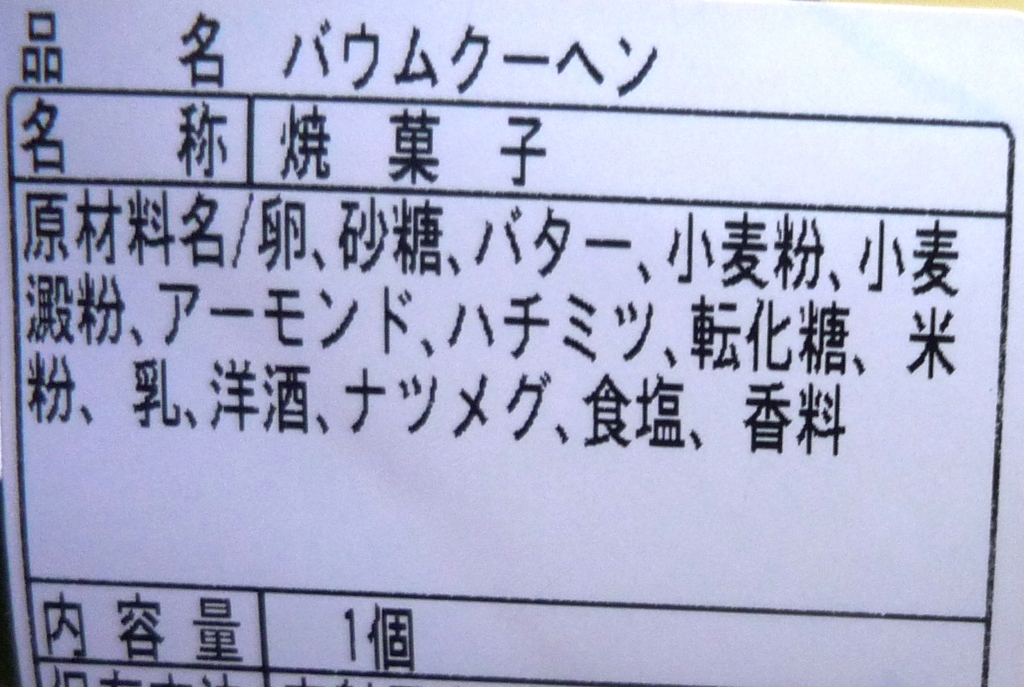 品名 バウムクーヘン
名称 焼菓子
原材料名/卵、砂糖、バター、小麦粉、小麦
澱粉、アーモンド、ハチミツ、転化糖、米
粉、乳、洋酒、ナツメグ、食塩、香料
内容量 1個